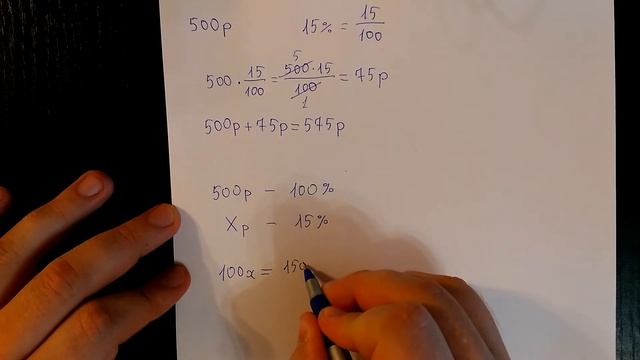 500р 15% = 15/100
500 · 15/100 = 500 · 15/100 = 75р
5
1
500р + 75р = 575р
500р – 100%
Xр – 15%
100x = 150